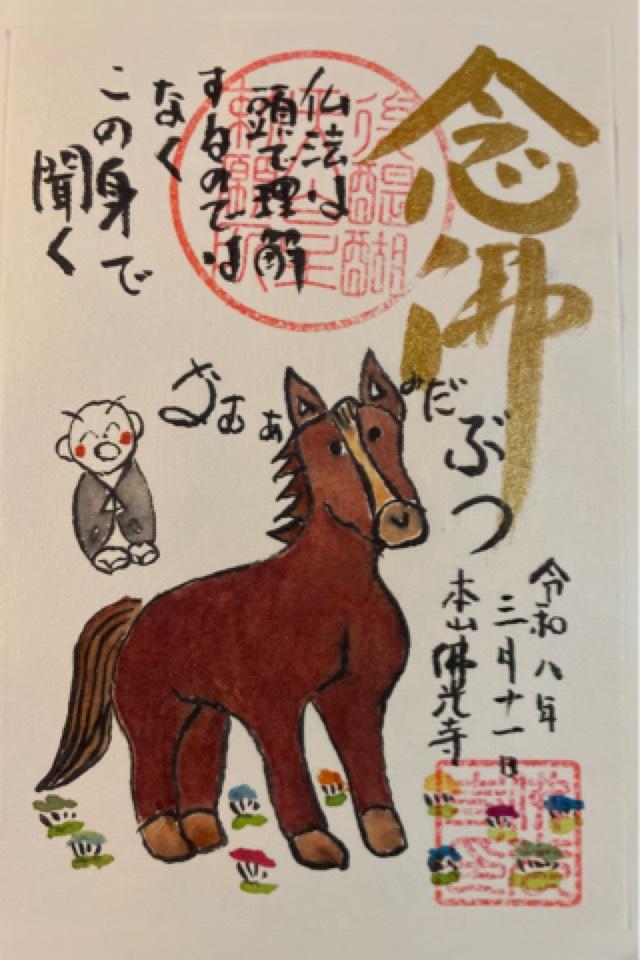 念佛
仏法は
頭で理解
するのでは
なく
この身で
聞く
なむぁ
みだ
ぶつ
令和八年
三月十一日
本山佛光寺
後醍醐
天皇
勅願所